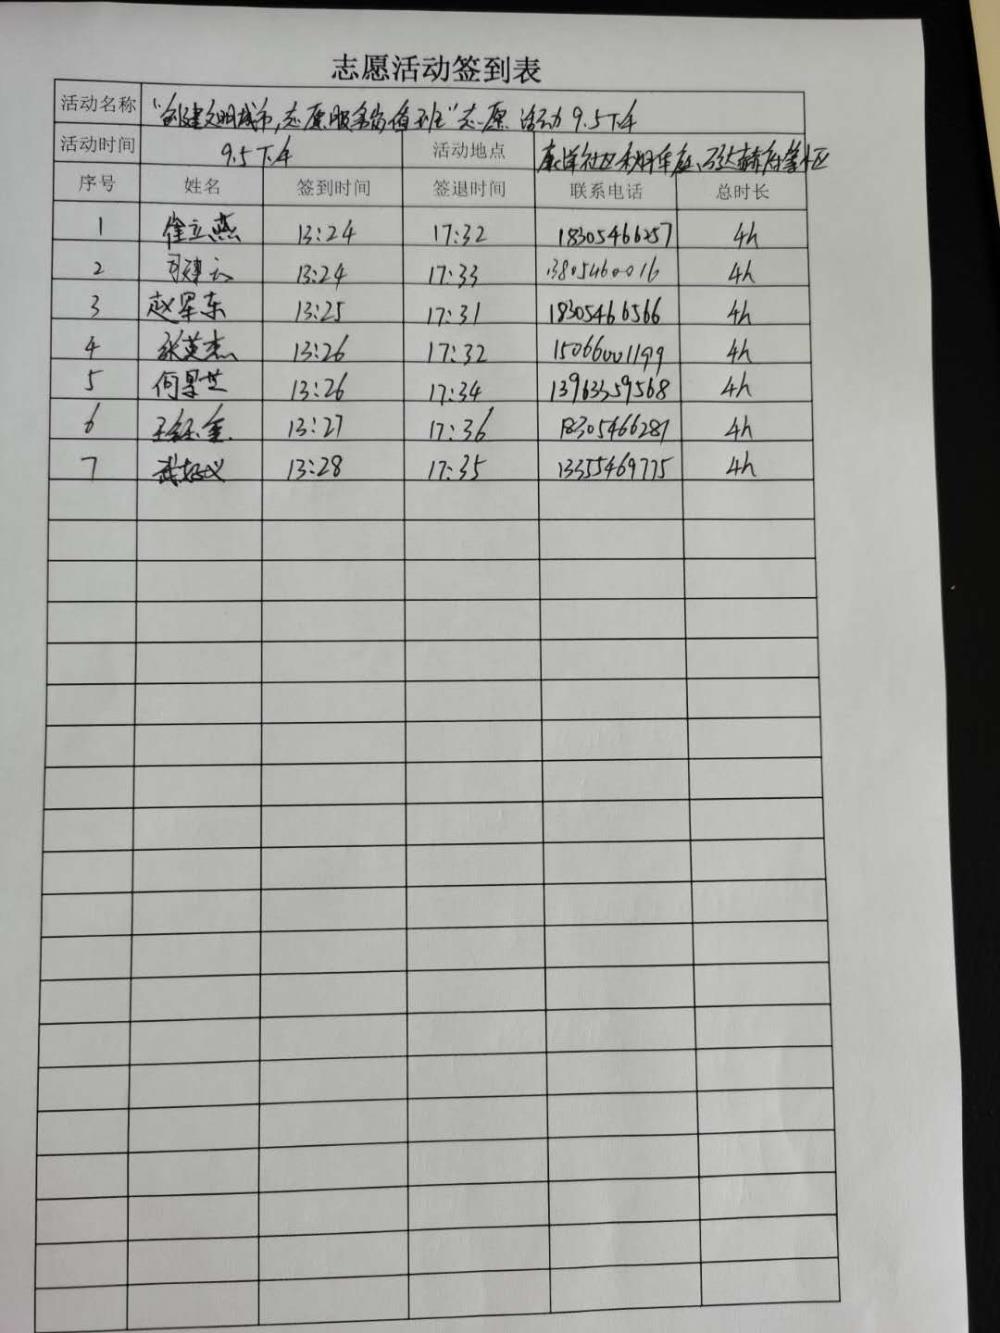 志愿活动签到表
活动名称 "创建文明城市,志愿服务岗值班"志愿活动 9.5下午
活动时间 9.5下午 活动地点 康洋社区
序号 姓名 签到时间 签退时间 联系电话 总时长
1 崔立燕 13:24 17:32 18305466257 4h
2 13:24 17:33 13805460016 4h
3 赵军东 13:25 17:31 18305466566 4h
4 张英杰 13:26 17:32 15066001199 4h
5 何景芝 13:26 17:34 13963359568 4h
6 13:27 17:36 18305466287 4h
7 13:28 17:35 13355469775 4h